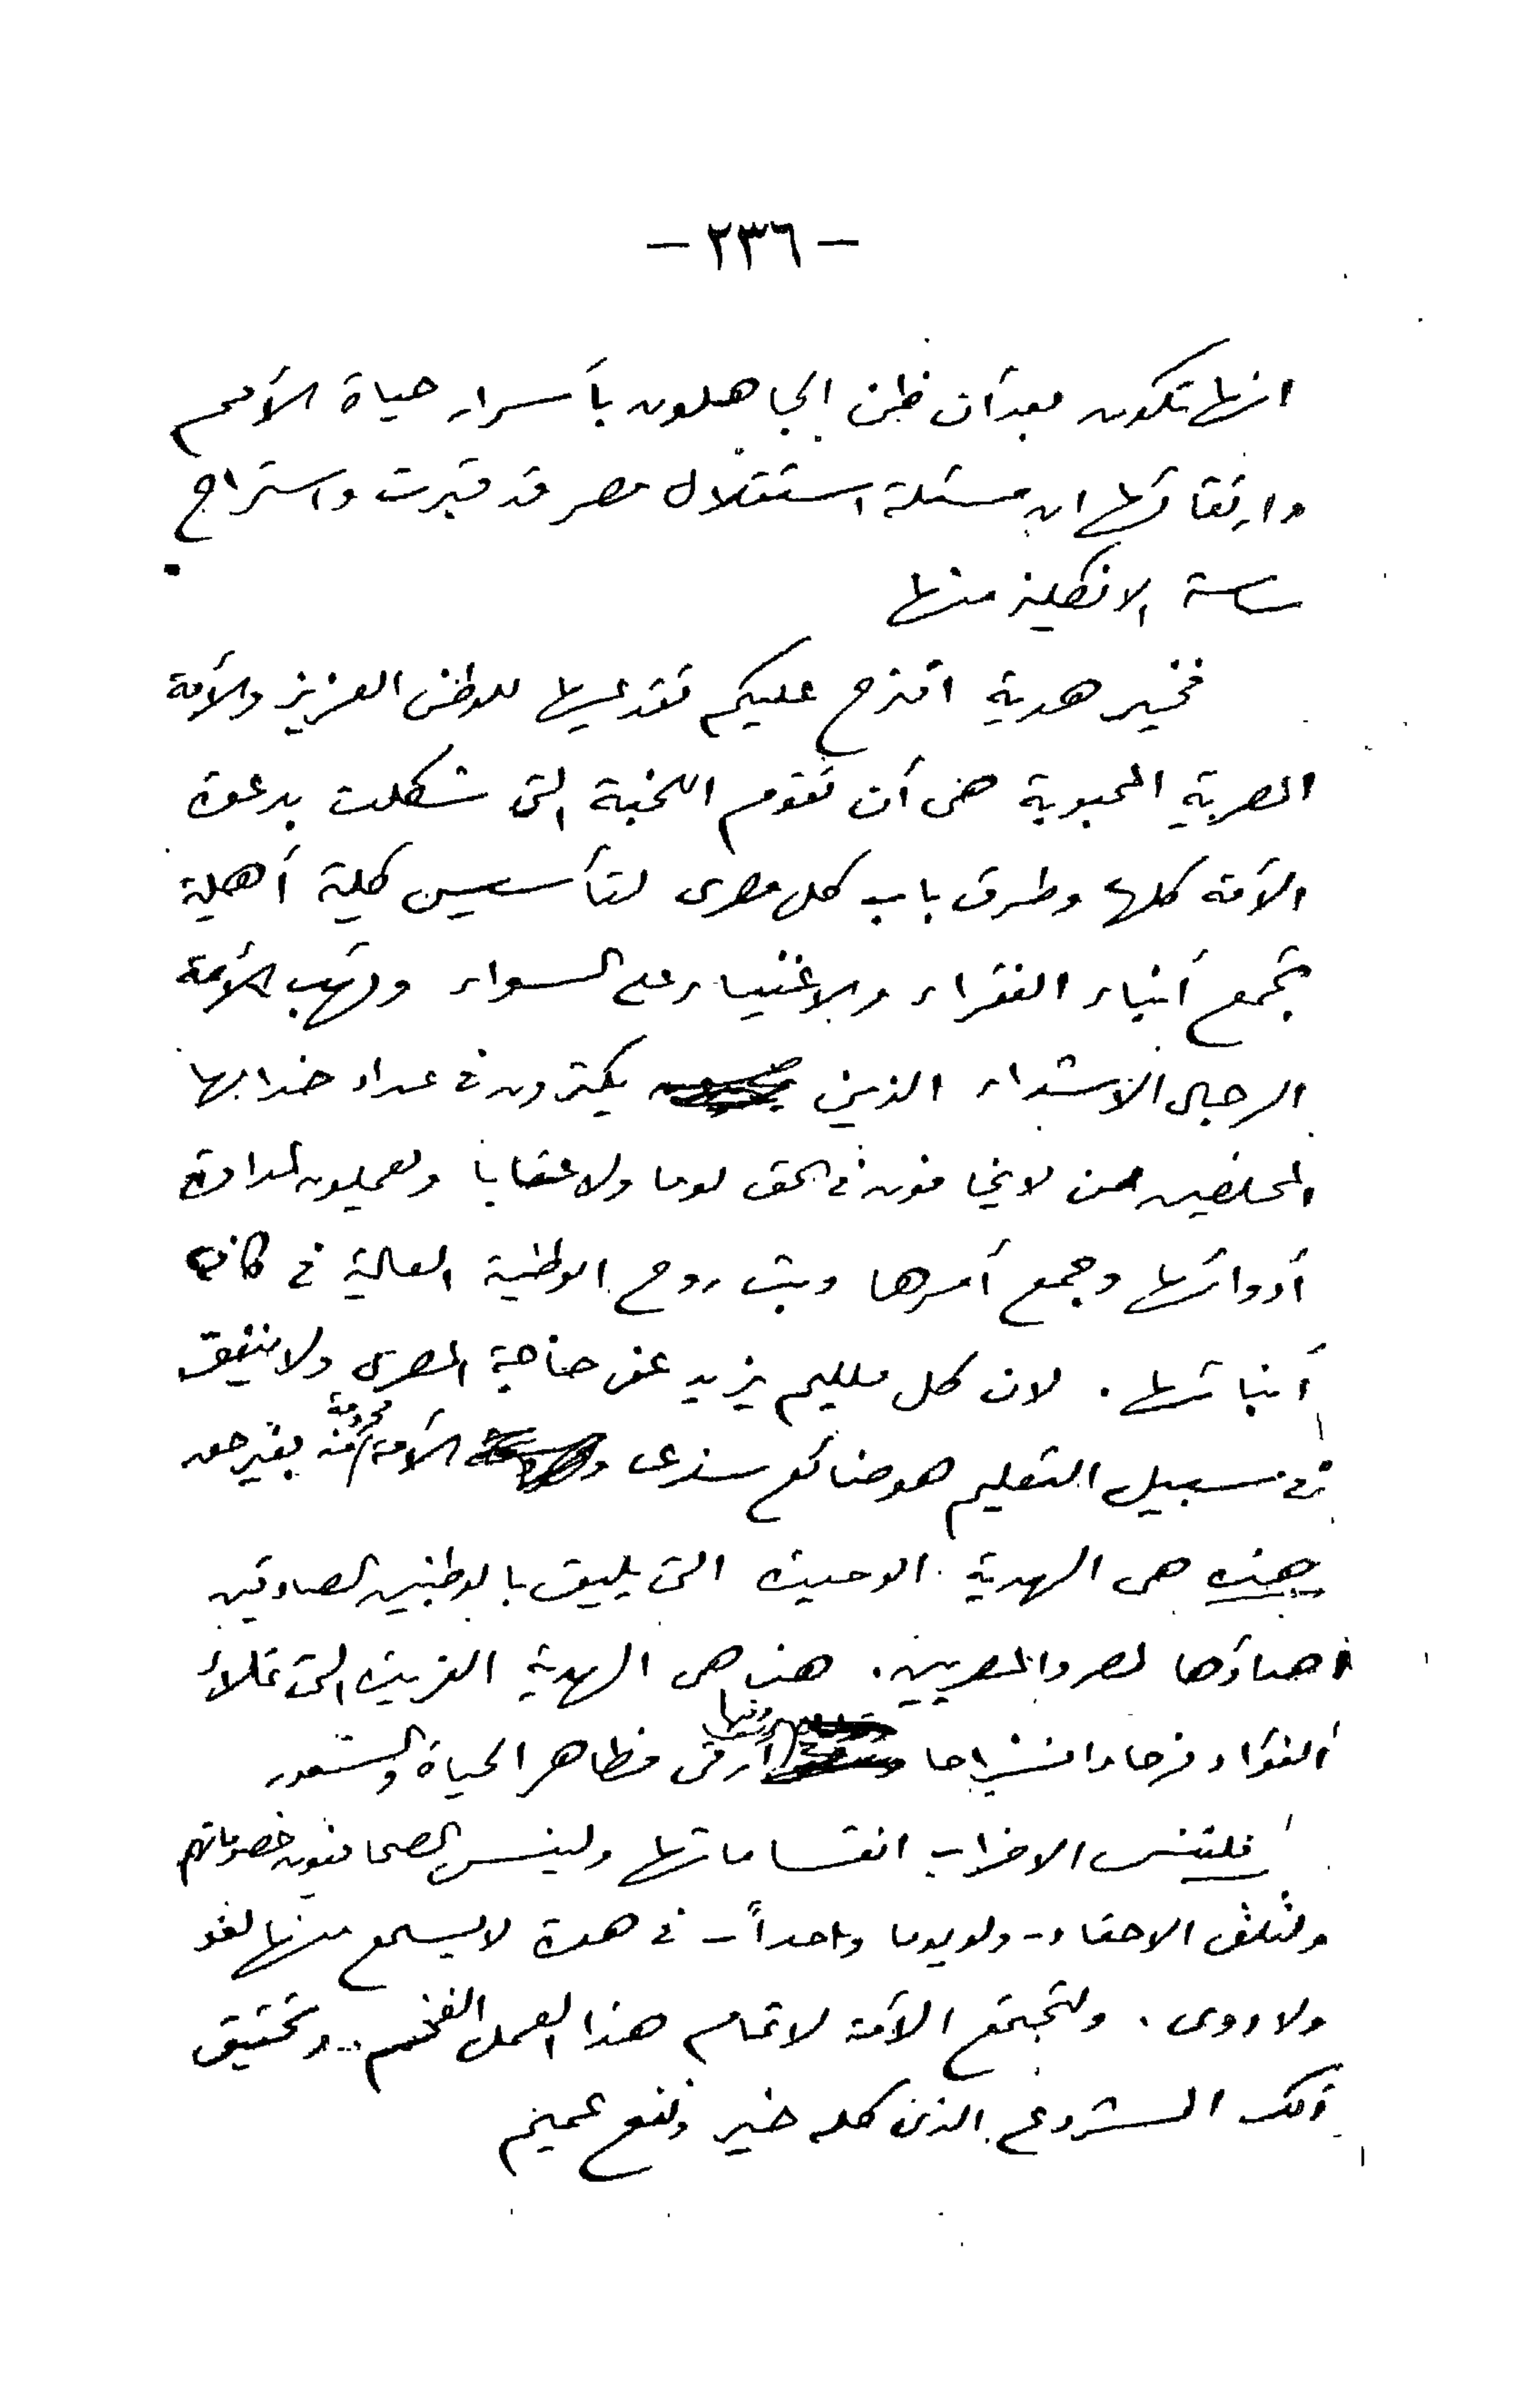 - ٢٣٦ -
انها تكون بعد أن ظن الجاهلون بأسرار حياة الأمم
وارتقائها ان مسئلة استقلال مصر قد قبرت واستراح
ساسة الانكليز منها
فخير هدية اقترح عليكم تقديمها للوطن العزيز والأمة
المصرية المحبوبة هى أن تقوم اللجنة التى تشكلت بدعوة
الأمة كلها وطرق باب كل مصرى لتأسيس كلية أهلية
تجمع أبناء الفقراء والاغنياء على السواء وتهب الأمة
الرجال الاشداء الذين يكثرون فى عداد خدامها
المخلصين ممن لا يخافون فى الحق لوما ولا عتابا ويعملون لمداواة
أدوائها وجمع أمرها وبث روح الوطنية العالية فى كافة
أبنائها . لان كل مليم يزيد عن حاجة المصرى ولا ينفق
فى سبيل التعليم هو ضائع سدى والأمة محرومة منه بغير حق
هذه هى الهدية الوحيدة التى يليق بالوطنيين الصادقين
اهداؤها لمصر والمصريين . هذه هى الهدية الفريدة التى تملأ
الفؤاد فرحا وانشراحا أرقى مظاهر الحياة والشعور
فلتنس الاحزاب انقساماتها ولينس الصحافيون خصوماتهم
ولتلق الاحقاد - ولو يوما واحداً - فى هوة لا يسمع منها لغو
ولا دوى . ولتجتمع الأمة لاتمام هذا العمل الفخيم .. وتحقيق
ذلك المشروع الذى كله خير ونفع عميم